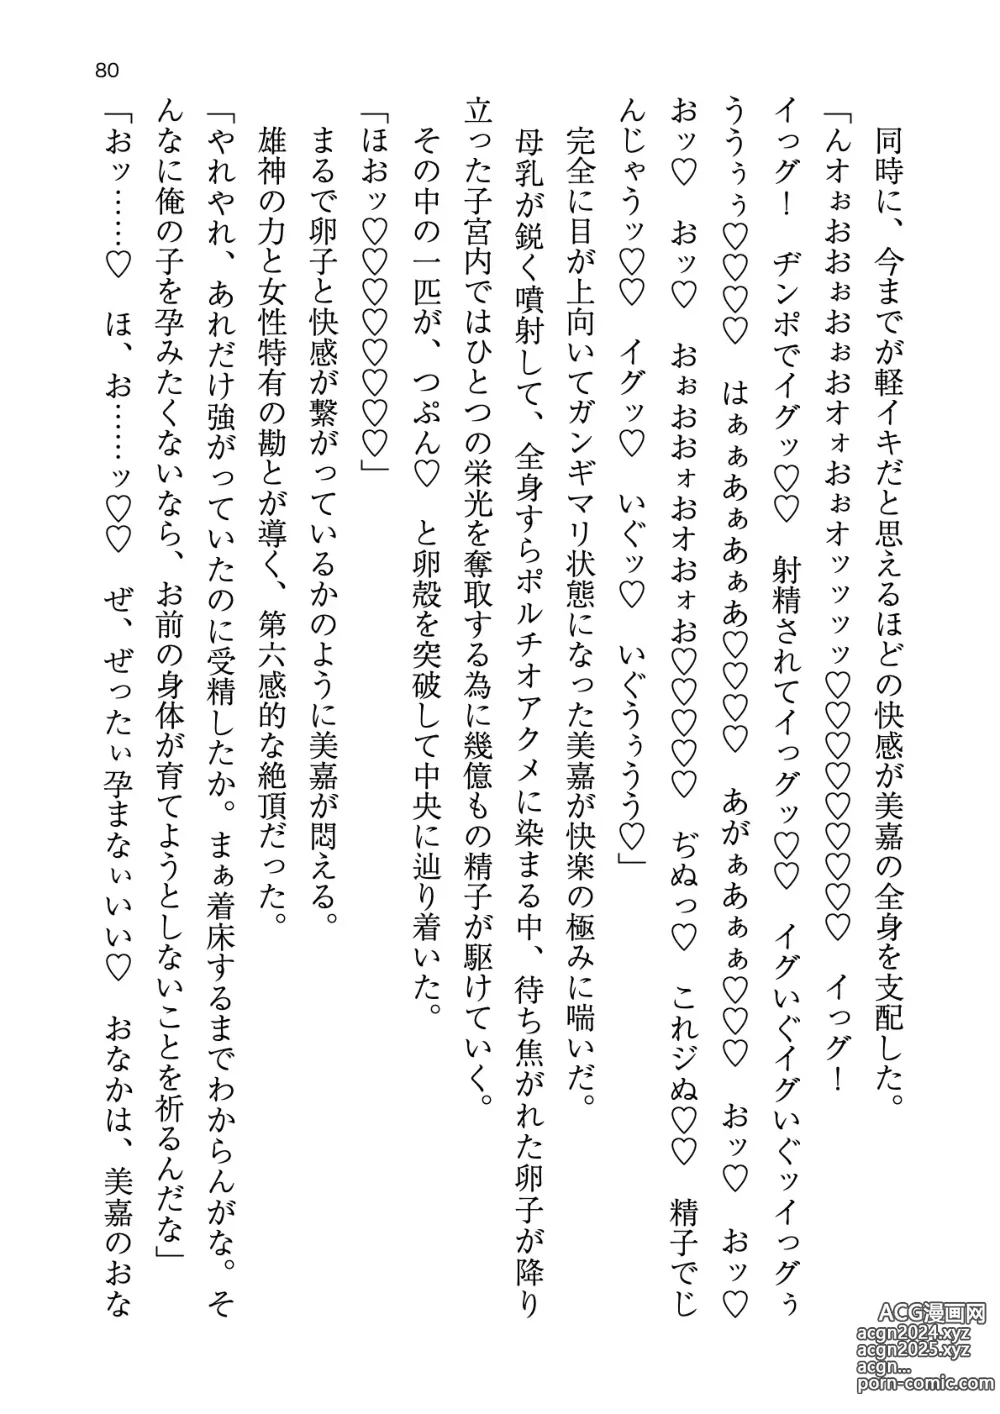 80
同時に、今までが軽イキだと思えるほどの快感が美嘉の全身を支配した。
「んオぉおおぉおぉおオォおぉオッッッッ♡♡♡♡♡♡♡♡♡　イっグ！
イっグ！　ヂンポでイグッ♡♡　射精されてイっグッ♡♡　イグいぐイグいぐッイっグぅ
ううぅぅ♡♡♡♡　はぁぁあぁあぁあ♡♡♡♡　あがぁあぁぁ♡♡♡　おッ♡　おッ♡
おッ♡　おッ♡　おぉおおォおオおォお♡♡♡♡♡　ぢぬっ♡　これジぬ♡♡　精子でじ
んじゃうッ♡♡　イグッ♡　いぐッ♡　いぐうぅうう♡」
完全に目が上向いてガンギマリ状態になった美嘉が快楽の極みに喘いだ。
母乳が鋭く噴射して、全身すらポルチオアクメに染まる中、待ち焦がれた卵子が降り
立った子宮内ではひとつの栄光を奪取する為に幾億もの精子が駆けていく。
その中の一匹が、つぷん♡　と卵殻を突破して中央に辿り着いた。
「ほおッ♡♡♡♡♡♡♡♡」
まるで卵子と快感が繋がっているかのように美嘉が悶える。
雄神の力と女性特有の勘とが導く、第六感的な絶頂だった。
「やれやれ、あれだけ強がっていたのに受精したか。まぁ着床するまでわからんがな。そ
んなに俺の子を孕みたくないなら、お前の身体が育てようとしないことを祈るんだな」
「おッ……♡　ほ、お……ッ♡♡　ぜ、ぜったぃ孕まなぃいい♡　おなかは、美嘉のおな
ACG漫画网
acgn2024.xyz
acgn2025.xyz
acgn...
porn-comic.com